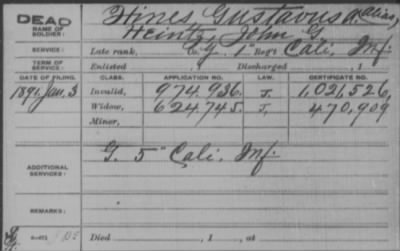 DEAD Hines, Gustavus A (alias,
NAME OF SOLDIER: Heintz, John G
SERVICE: Late rank, Co G, 1" Reg't Cali, Inf.
TERM OF SERVICE: Enlisted , 1 Discharged , 1
DATE OF FILING. CLASS. APPLICATION NO. LAW. CERTIFICATE NO.
1891 Jan. 3 Invalid, 974,936. J. 1,021,526,
Widow, 624,745. J. 470,909
Minor,
ADDITIONAL SERVICES: G. 5" Cali, Inf.
REMARKS:
Died , 1 , at